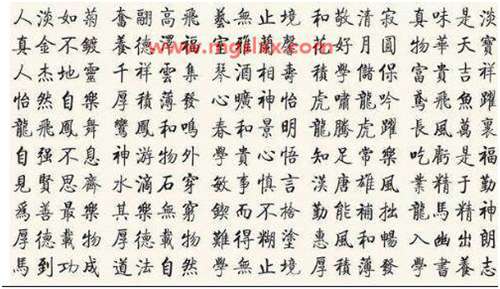 人淡如菊 奮翮高飛 藝無止境 和敬清寂 真味是淡
真金不鍍 養德澤福 蘭馨 花好月圓 物華天寶
人杰地靈 千祥雲集 琴酒相壽 積學儲保 富貴吉祥
怡然自樂 厚積薄發 心曠神怡 虎嘯龍吟 鳶飛魚躍
龍飛鳳舞 鸞鳳和鳴 春和景明 龍騰虎躍 長風萬裏
自强不息 神游物外 學貴心悟 知足常樂 吃虧是福
見賢思齊 水滴石穿 敏事慎言 漢唐雄風 業精于勤
爲善最樂 其樂無窮 鍥而不捨 勤能補拙 龍馬精神
厚德載物 厚德載物 難得糊塗 惠風和暢 入幽出朗
馬到功成 道法自然 學無止境 厚積薄發 學書養志